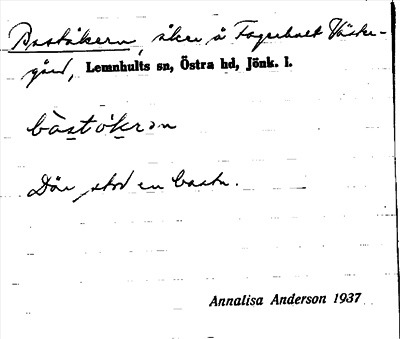 Bastökern, åker å Fagerhult Väster-
gård, Lemnhults sn, Östra hd, Jönk. l.
bàstòkrən
Där stod en bastu.
Annalisa Anderson 1937